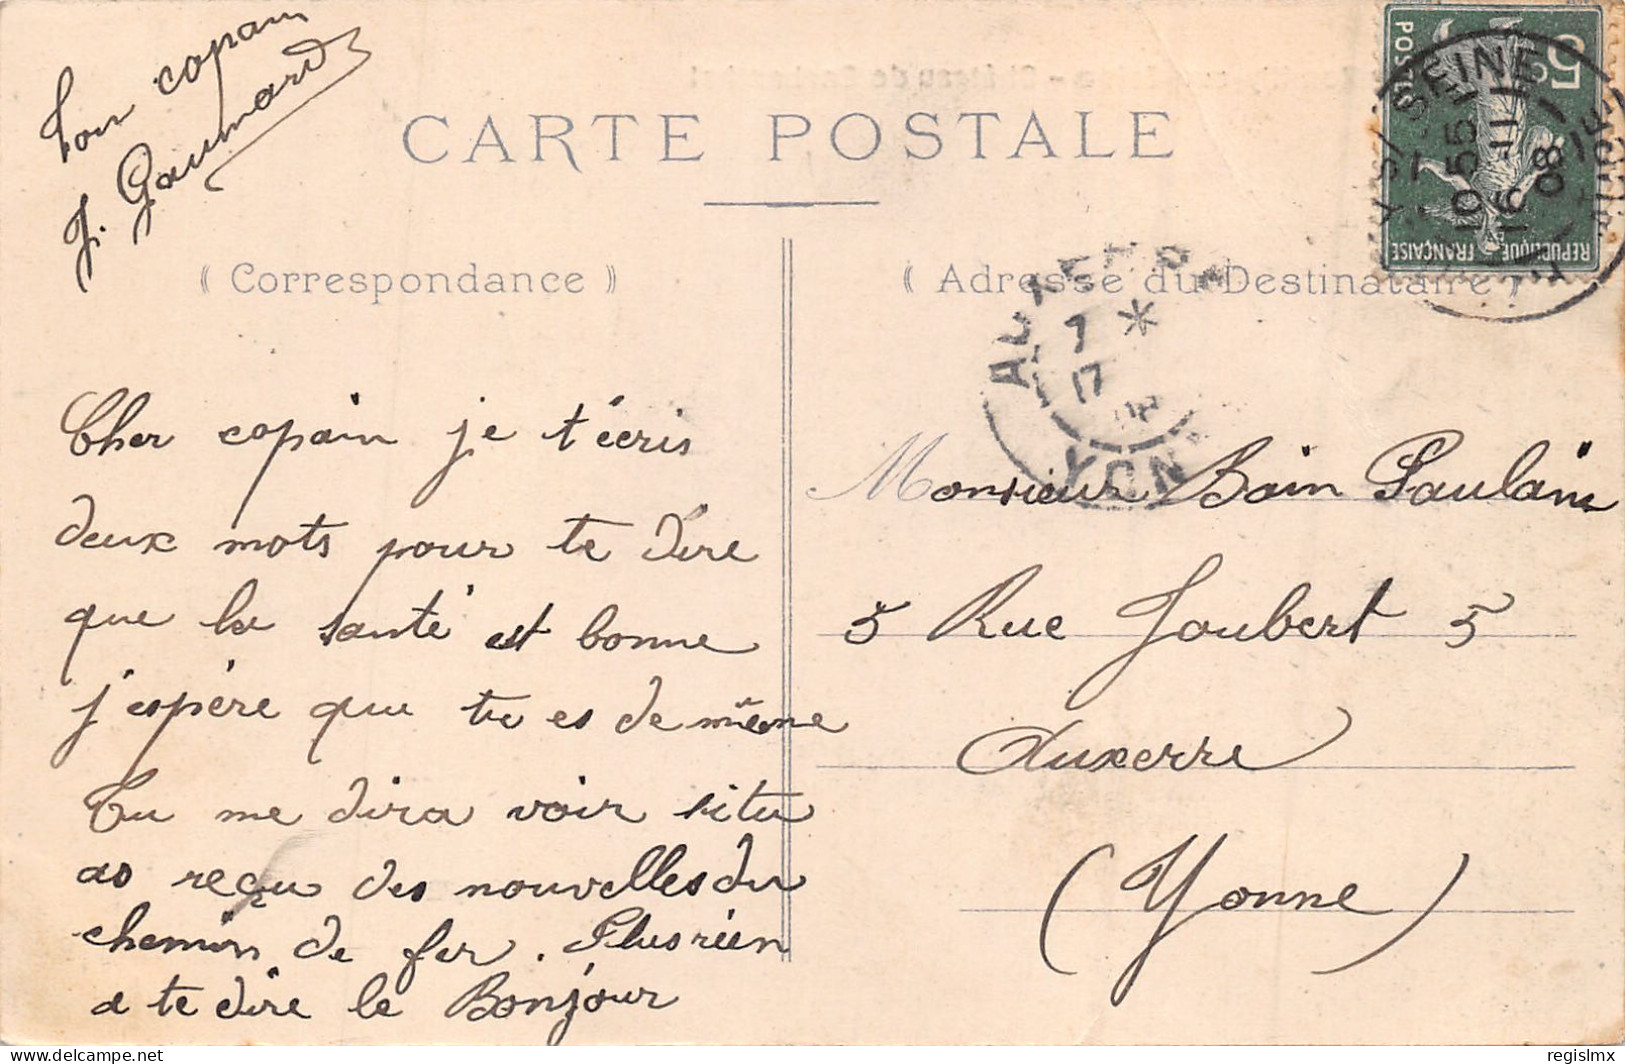 Ton copain
J. Gaumard
CARTE POSTALE
( Correspondance )
( Adresse du Destinataire )
5c
POSTES
REPUBLIQUE FRANÇAISE
SEINE
10 55
16 -11
08
7 *
17
YONNE
Cher copain je t'écris
deux mots pour te dire
que la santé est bonne
j'espère que tu es de même
Tu me dira voir si tu
as reçu des nouvelles du
chemin de fer. Plus rien
a te dire le Bonjour
Monsieur Bain Paulain
5 Rue Joubert 5
Auxerre
(Yonne)
www.delcampe.net
regislmx